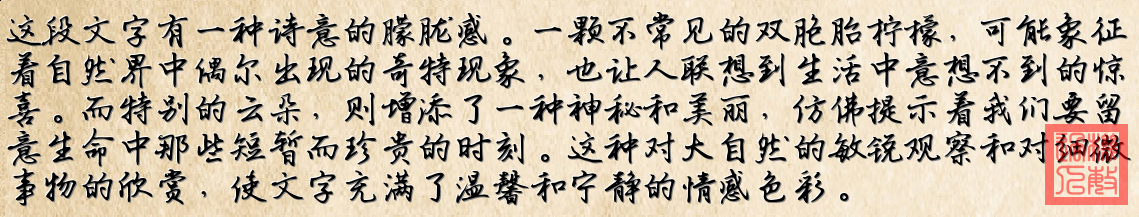 这段文字有一种诗意的朦胧感。一颗不常见的双胞胎柠檬，可能象征
着自然界中偶尔出现的奇特现象，也让人联想到生活中意想不到的惊
喜。而特别的云朵，则增添了一种神秘和美丽，仿佛提示着我们要留
意生命中那些短暂而珍贵的时刻。这种对大自然的敏锐观察和对细微
事物的欣赏，使文字充满了温馨和宁静的情感色彩。